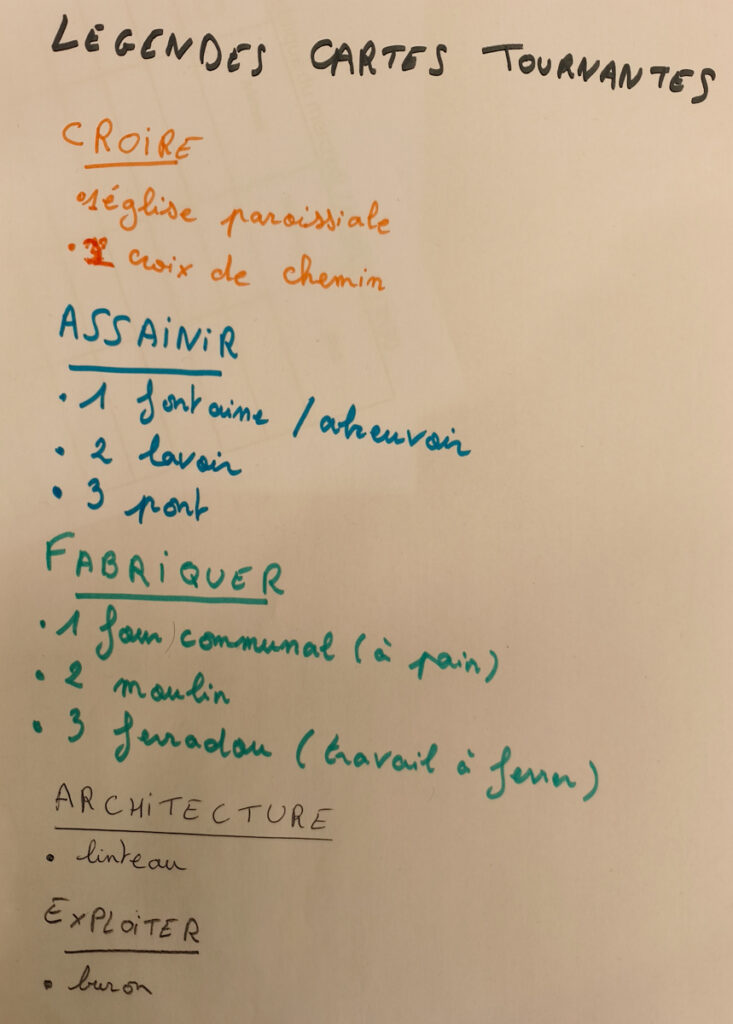 LEGENDES CARTES TOURNANTES
CROIRE
• 1 église paroissiale
• 2 croix de chemin
ASSAINIR
• 1 fontaine / abreuvoir
• 2 lavoir
• 3 pont
FABRIQUER
• 1 four communal (à pain)
• 2 moulin
• 3 ferradou (travail à ferrer)
ARCHITECTURE
• linteau
EXPLOITER
• buron